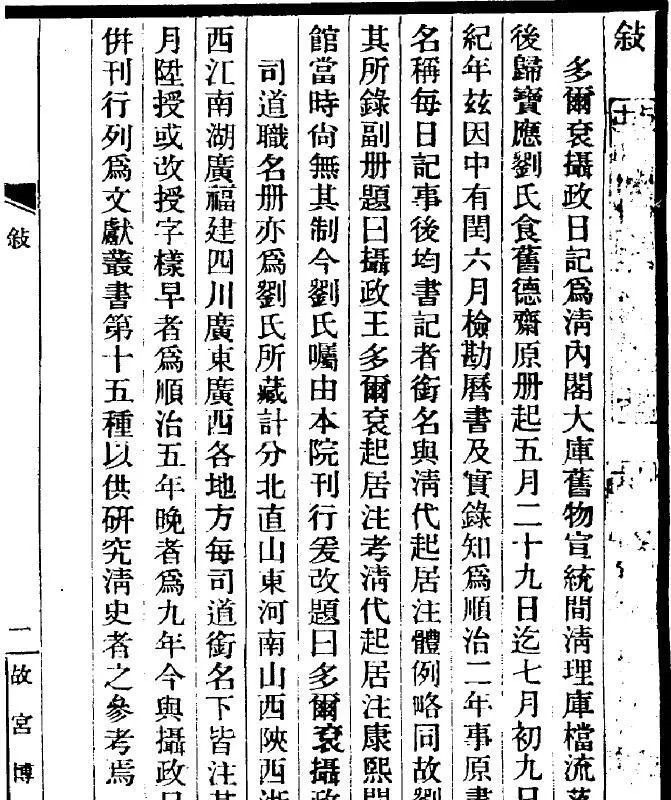 敍
多爾袞攝政日記爲淸內閣大庫舊物宣統間淸理庫檔流落
後歸寶應劉氏食舊德齋原册起五月二十九日迄七月初九日
紀年玆因中有閏六月檢勘曆書及實錄知爲順治二年事原書
名稱每日記事後均書記者銜名與淸代起居注體例略同故劉
其所錄副册題曰攝政王多爾袞起居注考淸代起居注康熙間
館當時尙無其制今劉氏囑由本院刊行爰改題曰多爾袞攝政
司道職名册亦爲劉氏所藏計分北直山東河南山西陝西浙
西江南湖廣福建四川廣東廣西各地方每司道銜名下皆注某
月陞授或改授字樣早者爲順治五年晚者爲九年今與攝政日
倂刊行列爲文獻叢書第十五種以供硏究淸史者之參考焉
敍
二
故宮博